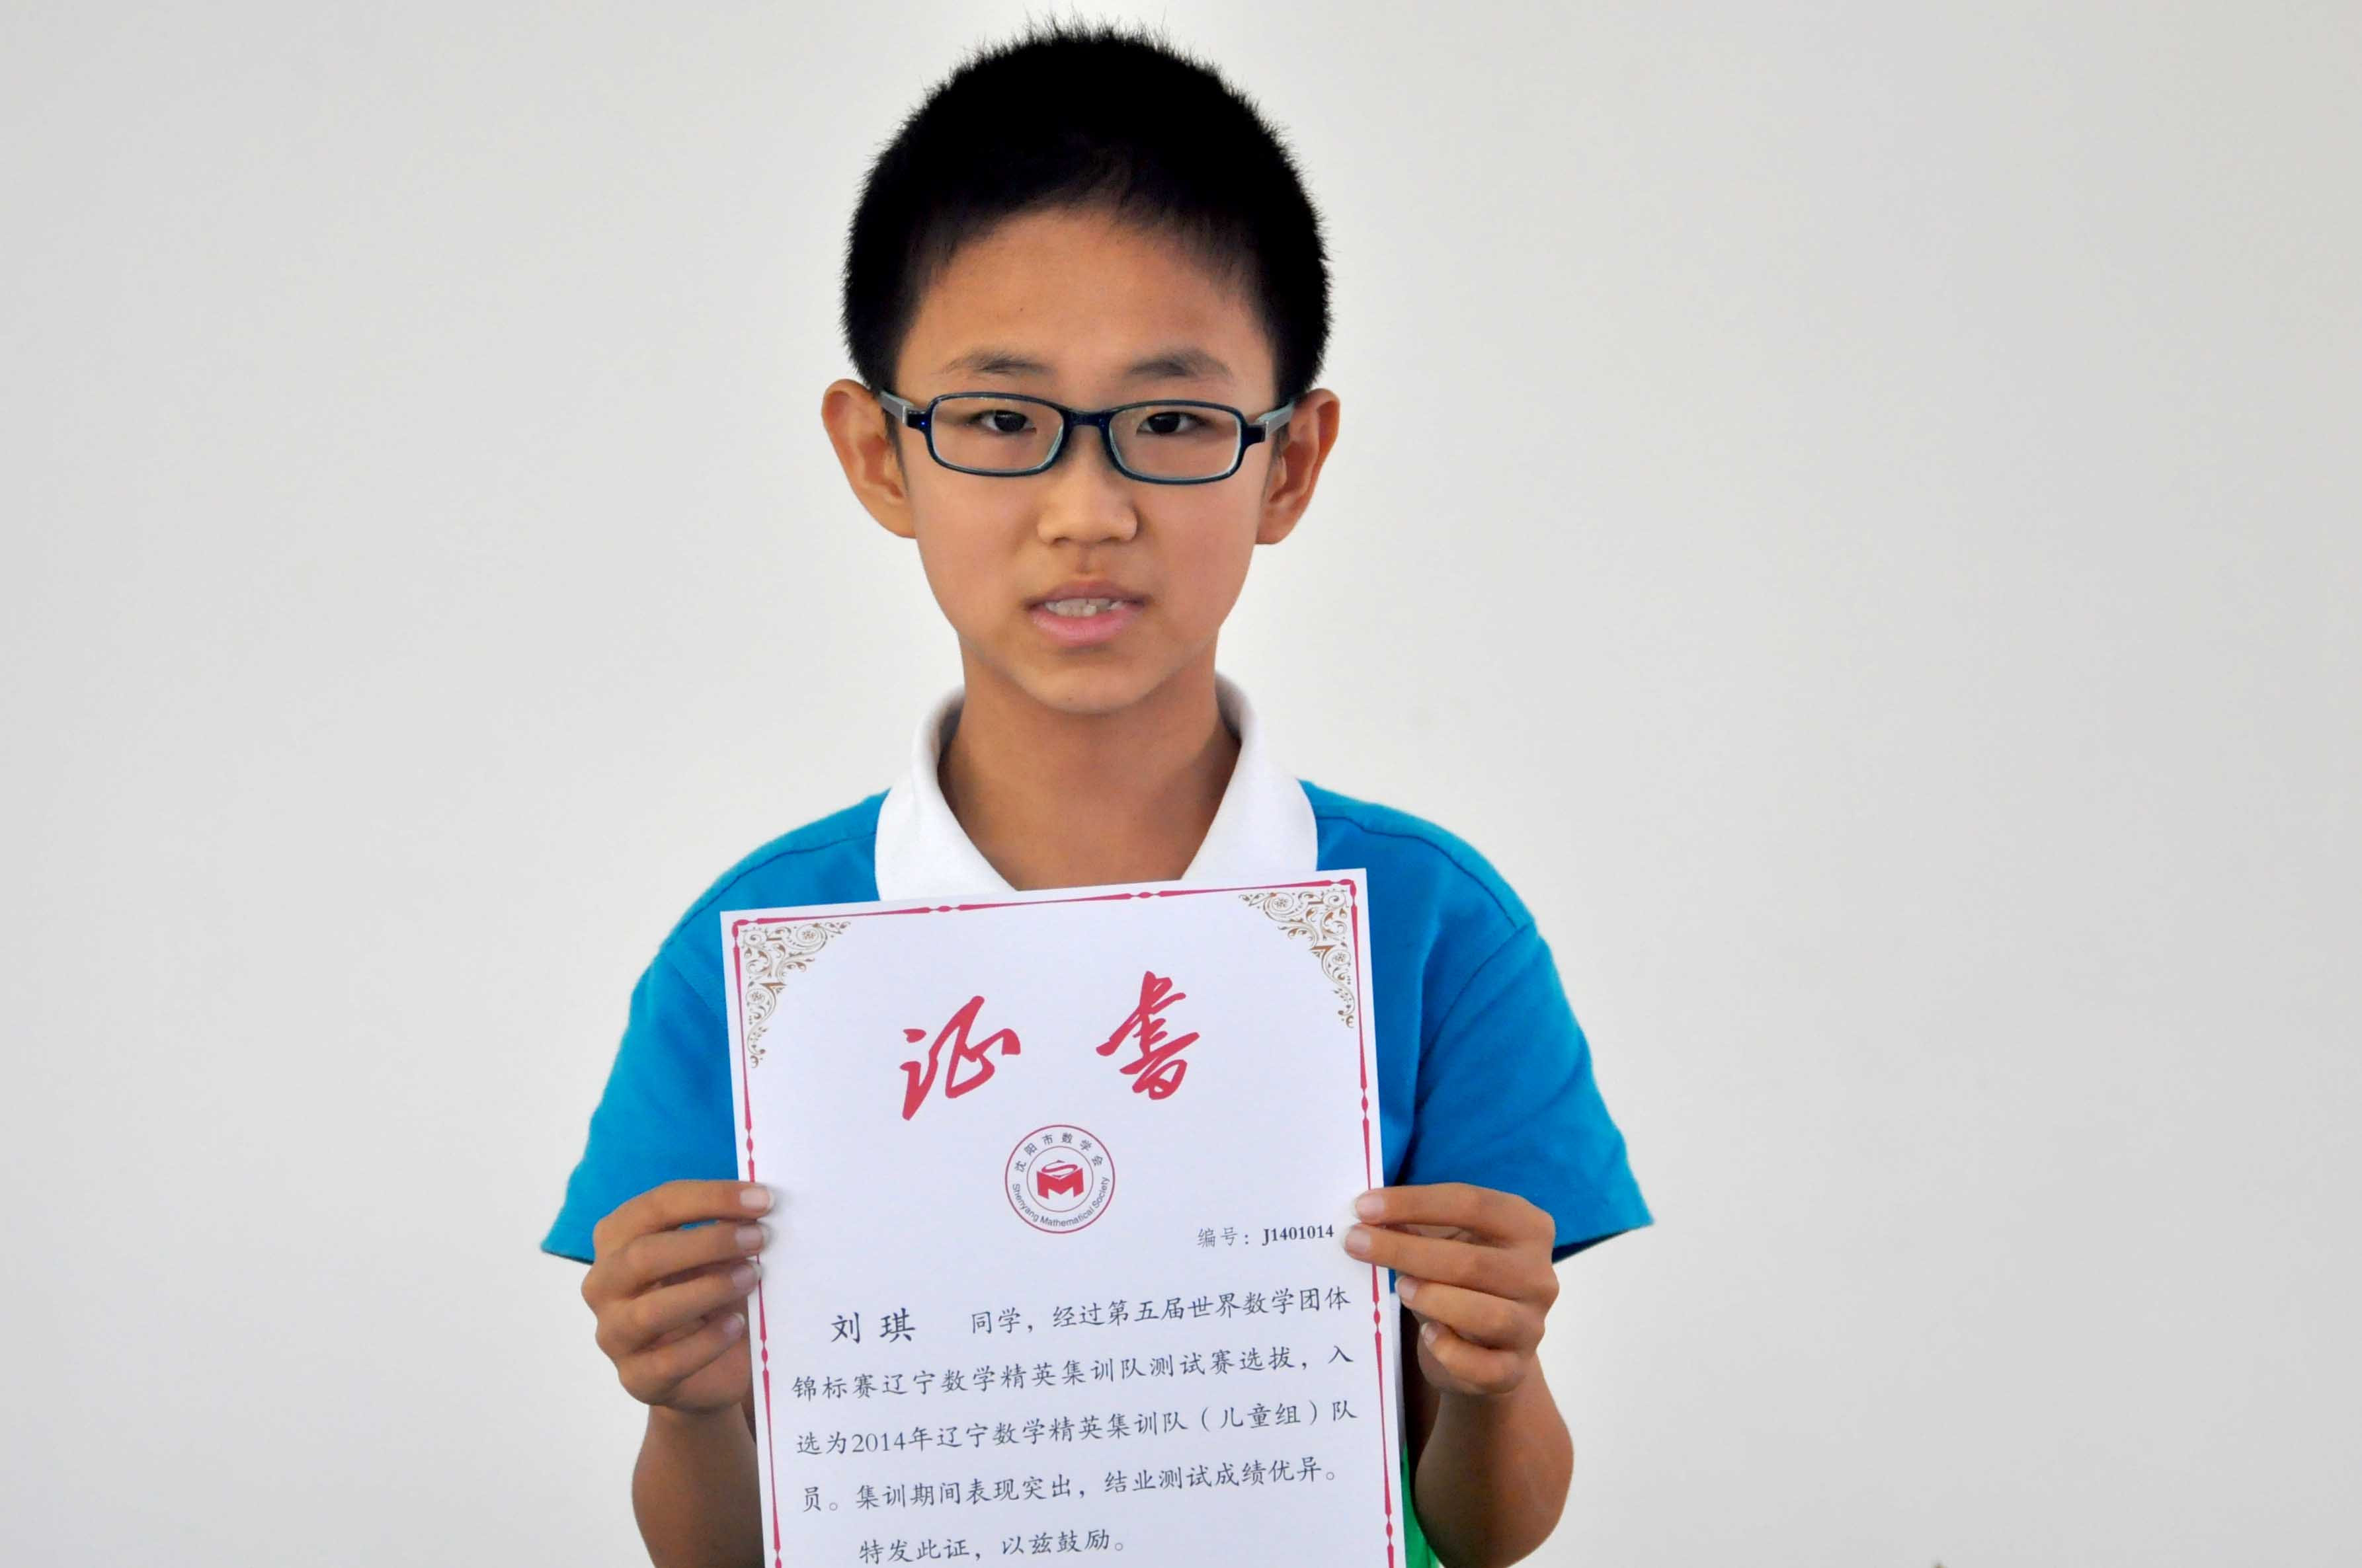 证书
沈阳市数学会
Shenyang Mathematical Society
编号：J1401014
刘琪 同学，经过第五届世界数学团体
锦标赛辽宁数学精英集训队测试赛选拔，入
选为2014年辽宁数学精英集训队（儿童组）队
员。集训期间表现突出，结业测试成绩优异。
特发此证，以兹鼓励。